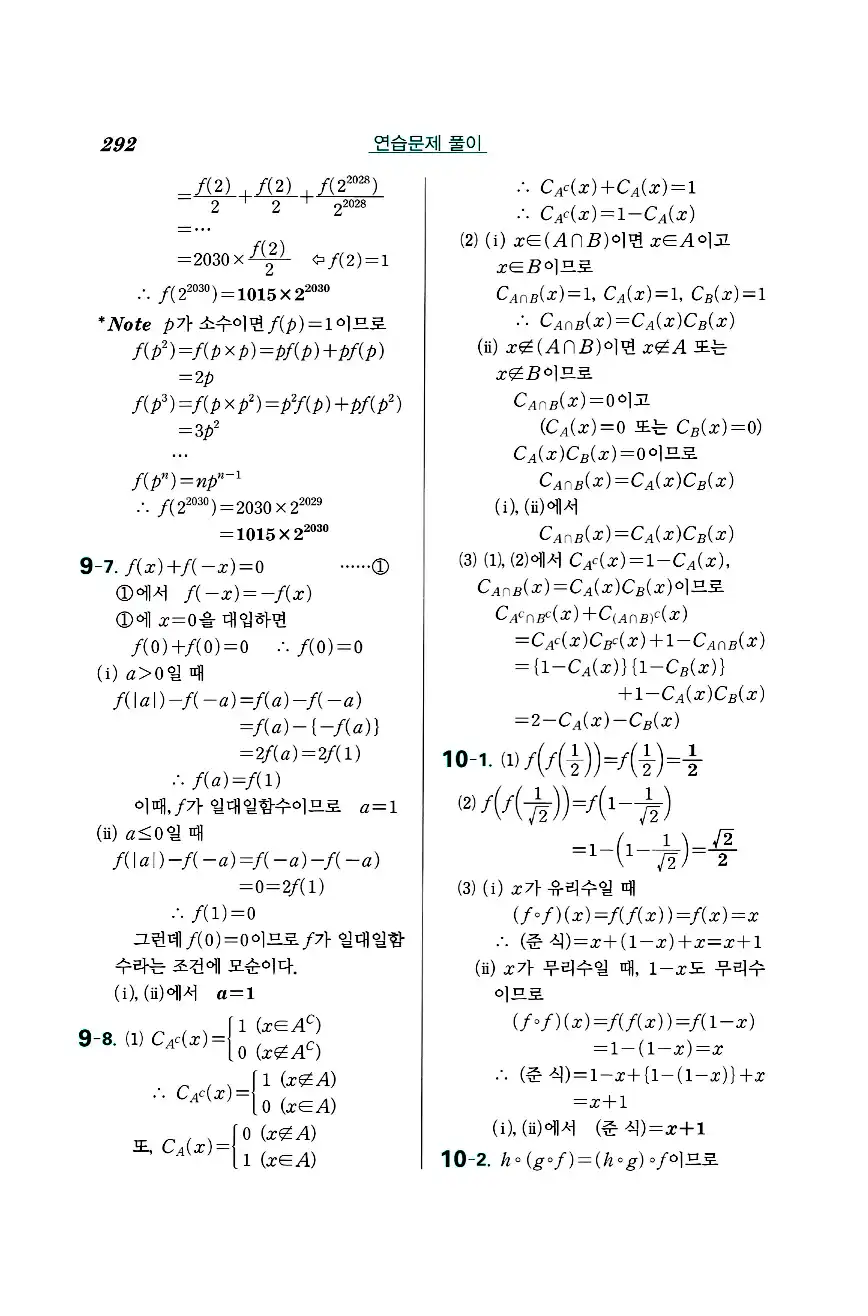 292 연습문제 풀이
=f(2)/2+f(2)/2+f(2²⁰²⁸)/2²⁰²⁸
=⋯
=2030×f(2)/2 ⇦f(2)=1
∴ f(2²⁰³⁰)=1015×2²⁰³⁰
*Note p가 소수이면 f(p)=1이므로
f(p²)=f(p×p)=pf(p)+pf(p)
=2p
f(p³)=f(p×p²)=p²f(p)+pf(p²)
=3p²
⋯
f(pⁿ)=npⁿ⁻¹
∴ f(2²⁰³⁰)=2030×2²⁰²⁹
=1015×2²⁰³⁰
9-7. f(x)+f(−x)=0 ⋯⋯①
①에서 f(−x)=−f(x)
①에 x=0을 대입하면
f(0)+f(0)=0 ∴ f(0)=0
(i) a>0일 때
f(|a|)−f(−a)=f(a)−f(−a)
=f(a)−{−f(a)}
=2f(a)=2f(1)
∴ f(a)=f(1)
이때, f가 일대일함수이므로 a=1
(ii) a≤0일 때
f(|a|)−f(−a)=f(−a)−f(−a)
=0=2f(1)
∴ f(1)=0
그런데 f(0)=0이므로 f가 일대일함
수라는 조건에 모순이다.
(i), (ii)에서 a=1
9-8. (1) C_{A^C}(x)={1 (x∈A^C)
0 (x∉A^C)
∴ C_{A^C}(x)={1 (x∉A)
0 (x∈A)
또, C_A(x)={0 (x∉A)
1 (x∈A)
∴ C_{A^C}(x)+C_A(x)=1
∴ C_{A^C}(x)=1−C_A(x)
(2) (i) x∈(A∩B)이면 x∈A이고
x∈B이므로
C_{A∩B}(x)=1, C_A(x)=1, C_B(x)=1
∴ C_{A∩B}(x)=C_A(x)C_B(x)
(ii) x∉(A∩B)이면 x∉A 또는
x∉B이므로
C_{A∩B}(x)=0이고
(C_A(x)=0 또는 C_B(x)=0)
C_A(x)C_B(x)=0이므로
C_{A∩B}(x)=C_A(x)C_B(x)
(i), (ii)에서
C_{A∩B}(x)=C_A(x)C_B(x)
(3) (1), (2)에서 C_{A^C}(x)=1−C_A(x),
C_{A∩B}(x)=C_A(x)C_B(x)이므로
C_{A^C∩B^C}(x)+C_{(A∩B)^C}(x)
=C_{A^C}(x)C_{B^C}(x)+1−C_{A∩B}(x)
={1−C_A(x)}{1−C_B(x)}
+1−C_A(x)C_B(x)
=2−C_A(x)−C_B(x)
10-1. (1) f(f(1/2))=f(1/2)=1/2
(2) f(f(1/√2))=f(1−1/√2)
=1−(1−1/√2)=√2/2
(3) (i) x가 유리수일 때
(f∘f)(x)=f(f(x))=f(x)=x
∴ (준 식)=x+(1−x)+x=x+1
(ii) x가 무리수일 때, 1−x도 무리수
이므로
(f∘f)(x)=f(f(x))=f(1−x)
=1−(1−x)=x
∴ (준 식)=1−x+{1−(1−x)}+x
=x+1
(i), (ii)에서 (준 식)=x+1
10-2. h∘(g∘f)=(h∘g)∘f이므로